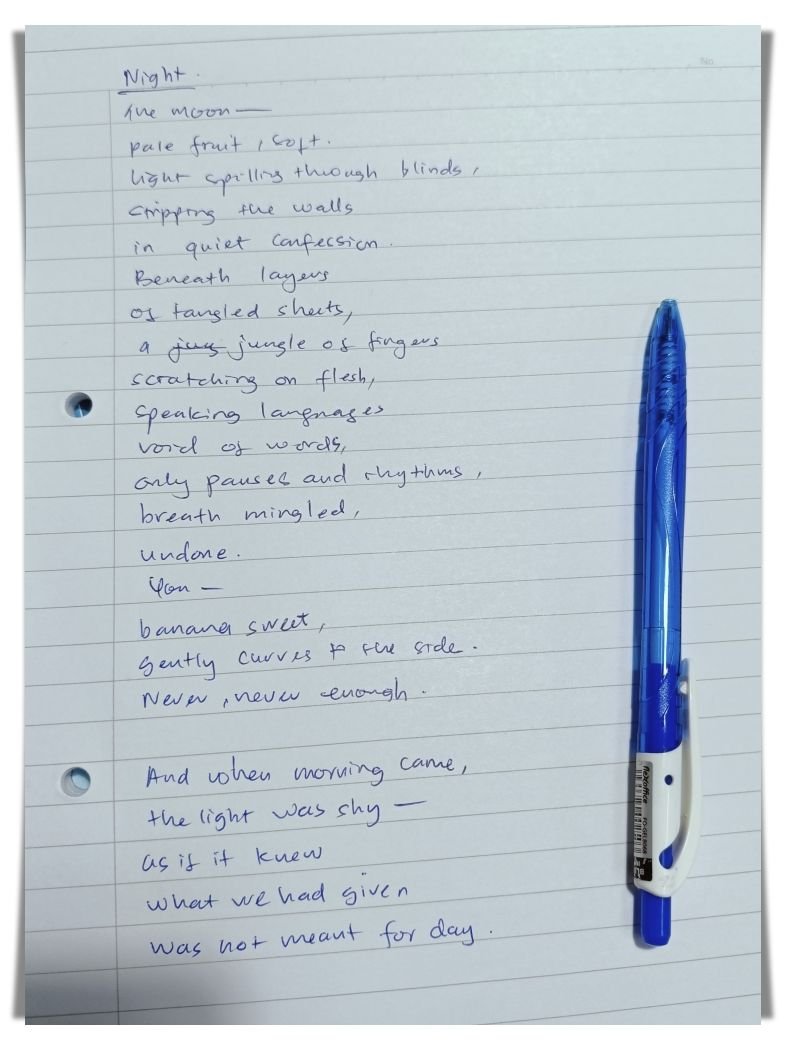 No.
Night.
the moon —
pale fruit, soft.
light spilling through blinds,
stripping the walls
in quiet confession.
Beneath layers
of tangled sheets,
a jungle of fingers
scratching on flesh,
speaking languages
void of words,
only pauses and rhythms,
breath mingled,
undone.
You —
banana sweet,
gently curves to the side.
Never, never enough.
And when morning came,
the light was shy —
as if it knew
what we had given
was not meant for day.
flexoffice